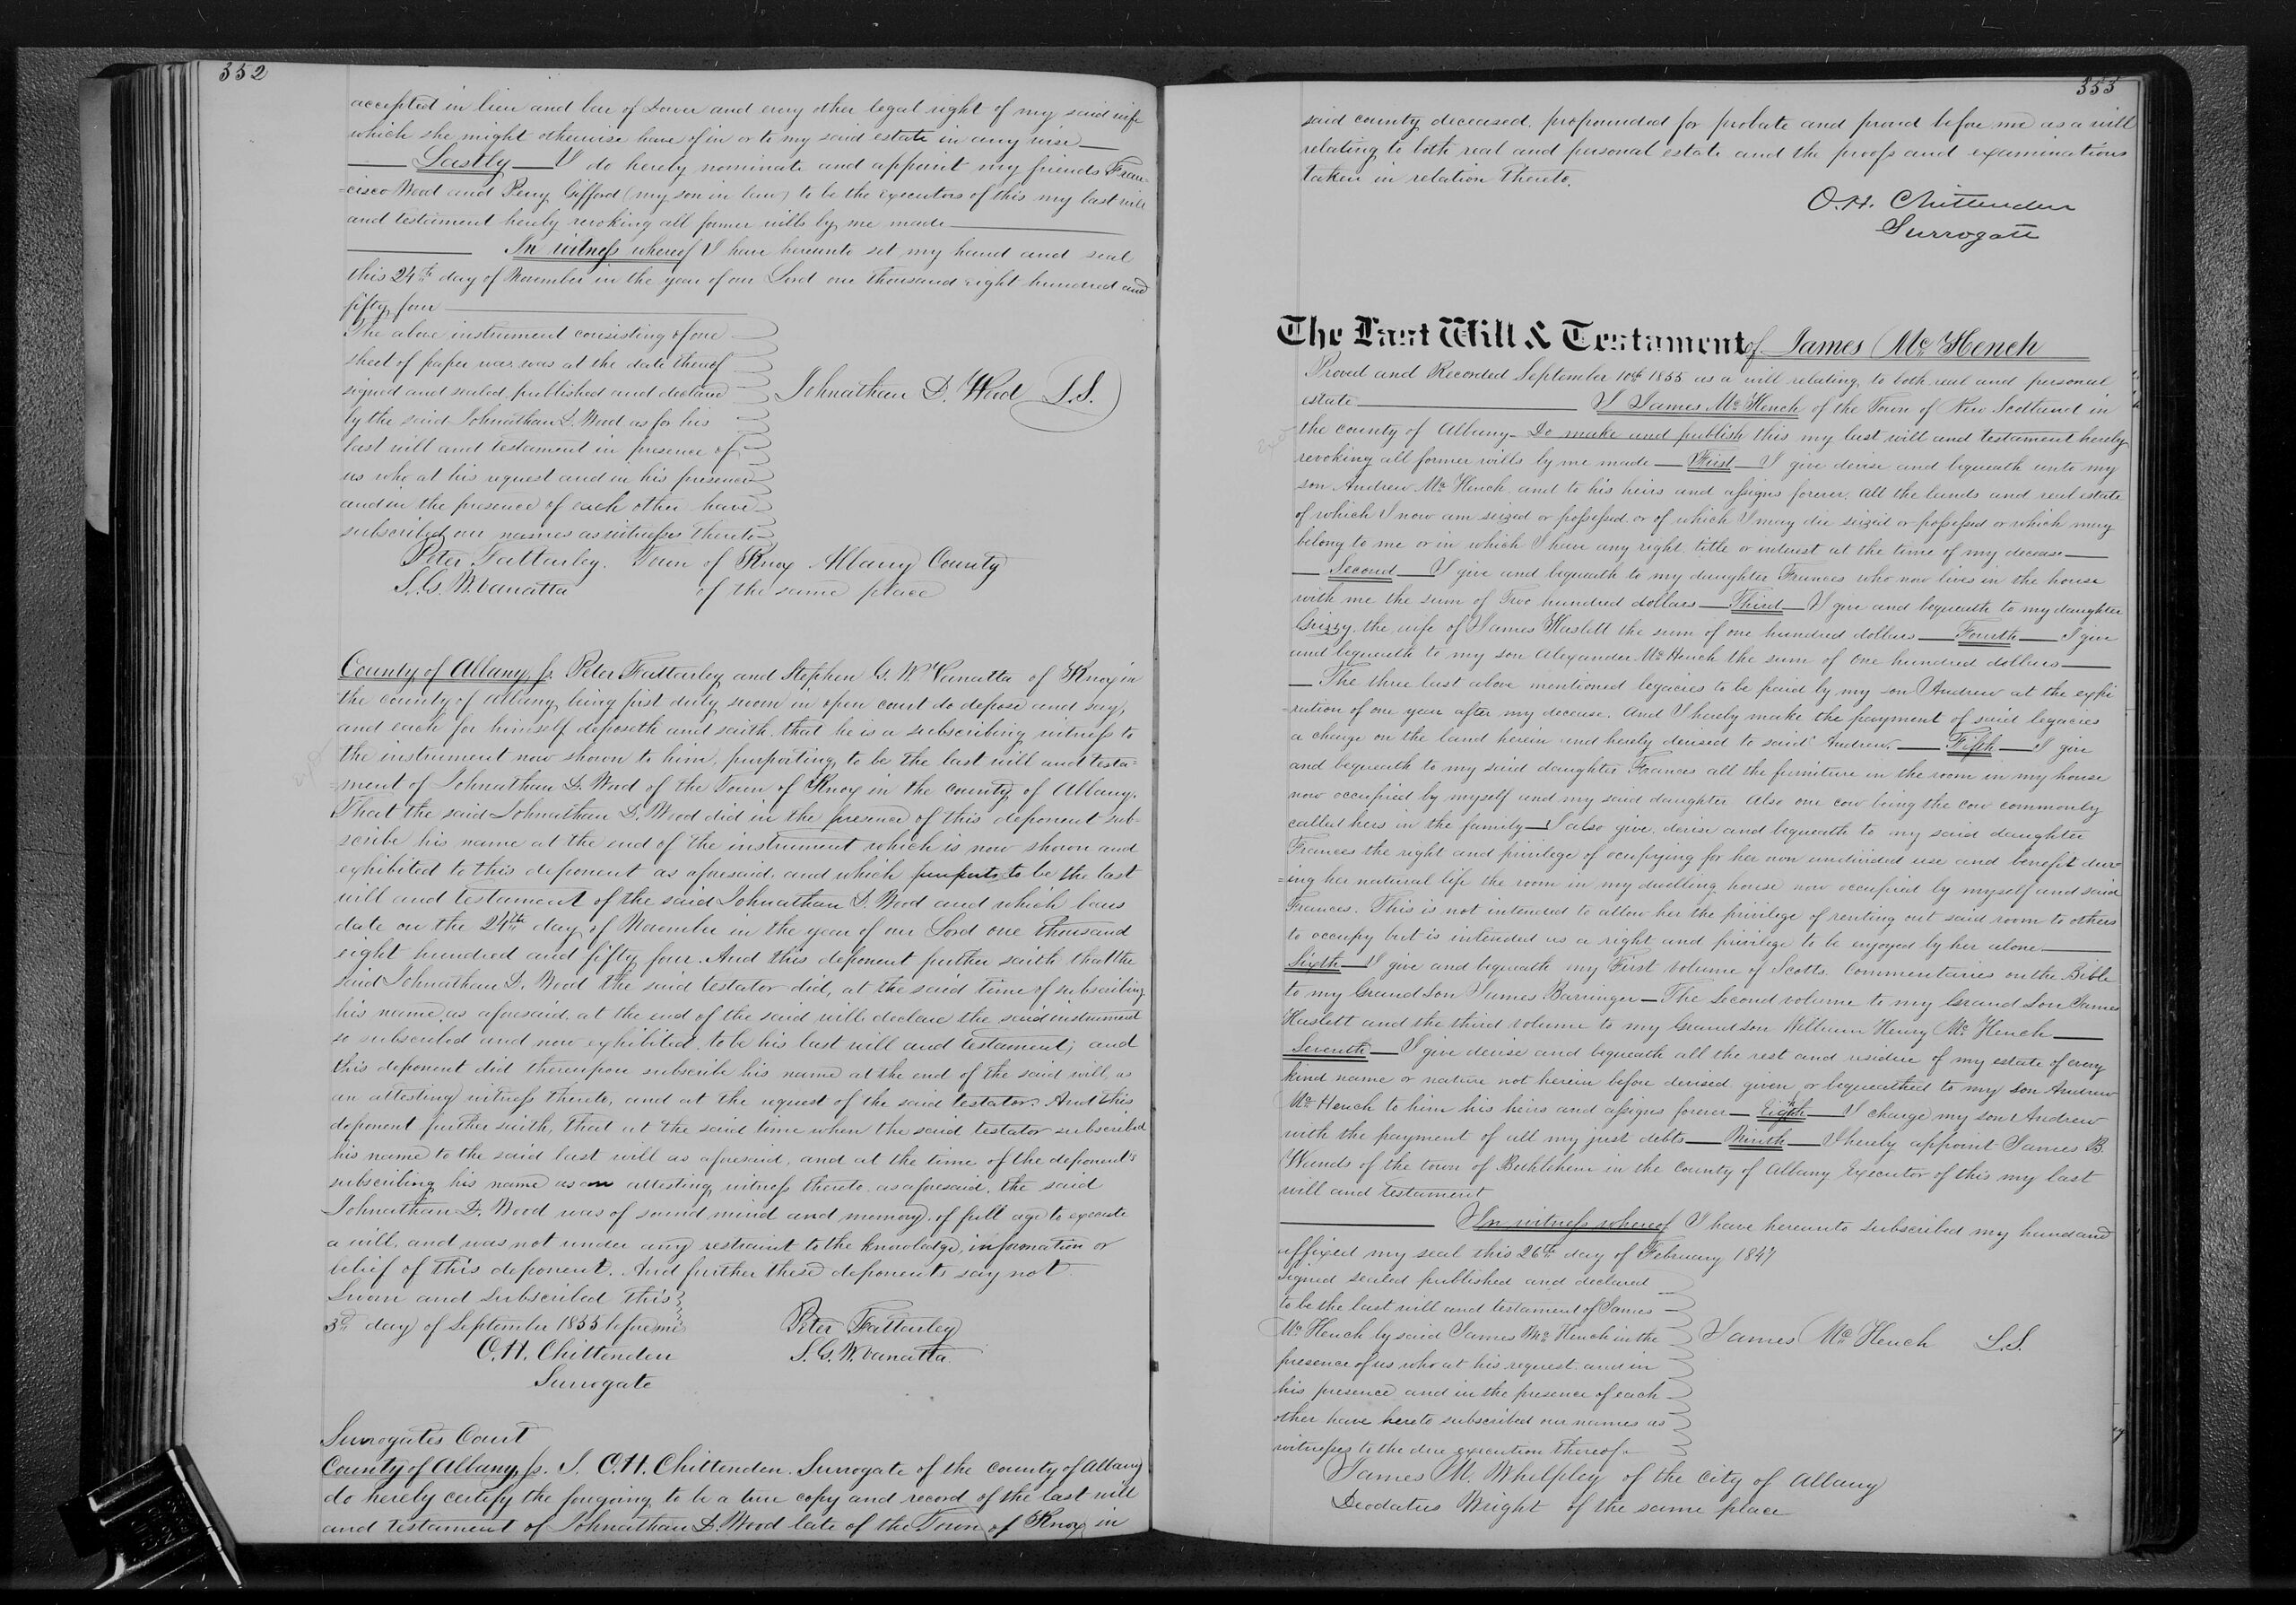 352
accepted in lieu and bar of Dower and every other legal right of my said wife
which she might otherwise have of in or to my said estate in any wise
Lastly I do hereby nominate and appoint my friends Fran-
=cisco Wood and Perry Gifford (my son in law) to be the executors of this my last will
and testament hereby revoking all former wills by me made
In witness whereof I have hereunto set my hand and seal
this 24th day of November in the year of our Lord one thousand eight hundred and
fifty four
The above instrument consisting of one
sheet of paper was was at the date thereof
signed and sealed published and declared
by the said Johnathan D. Wood as for his
last will and testament in presence of
us who at his request and in his presence
and in the presence of each other have
subscribed our names as witnesses thereto
Johnathan D. Wood L.S.
Peter Fattarley. Town of Knox Albany County
S. G. W. Vanatta of the same place
County of Albany ss. Peter Fattarley and Stephen G. W. Vanatta of Knox in
the county of Albany being first duly sworn in open court do depose and say,
and each for himself deposeth and saith that he is a subscribing witness to
the instrument now shown to him, purporting to be the last will and testa-
=ment of Johnathan D. Wood of the Town of Knox in the county of Albany.
That the said Johnathan D. Wood did in the presence of this deponent sub-
scribe his name at the end of the instrument which is now shown and
exhibited to this deponent as aforesaid, and which purports to be the last
will and testament of the said Johnathan D. Wood and which bears
date on the 24th day of November in the year of our Lord one thousand
eight hundred and fifty four. And this deponent further saith that the
said Johnathan D. Wood the said testator did, at the said time of subscribing
his name as aforesaid at the end of the said will declare the said instrument
so subscribed and now exhibited to be his last will and testament; and
this deponent did thereupon subscribe his name at the end of the said will as
an attesting witness thereto, and at the request of the said testator. And this
deponent further saith, that at the said time when the said testator subscribed
his name to the said last will as aforesaid, and at the time of the deponent's
subscribing his name as an attesting witness thereto, as aforesaid, the said
Johnathan D. Wood was of sound mind and memory, of full age to execute
a will, and was not under any restraint to the knowledge, information or
belief of this deponent. And further these deponents say not.
Sworn and Subscribed this
3d day of September 1855 before me
O. H. Chittenden
Surrogate
Peter Fattarley
S. G. W. Vanatta
Surrogates Court
County of Albany ss. I. O. H. Chittenden. Surrogate of the county of Albany
do hereby certify the foregoing to be a true copy and record of the last will
and testament of Johnathan D. Wood late of the Town of Knox in
353
said county deceased, propounded for probate and proved before me as a will
relating to both real and personal estate and the proofs and examinations
taken in relation thereto.
O. H. Chittenden
Surrogate
The Last Will & Testament of James Mc Hench
Proved and Recorded September 10th 1855 as a will relating to both real and personal
estate I James Mc Hench of the Town of New Scotland in
the county of Albany Do make and publish this my last will and testament hereby
revoking all former wills by me made First I give devise and bequeath unto my
son Andrew Mc Hench and to his heirs and assigns forever, all the lands and real estate
of which I now am seized or possessed or of which I may die seized or possessed or which may
belong to me or in which I have any right title or interest at the time of my decease
Second I give and bequeath to my daughter Frances who now lives in the house
with me the sum of Two hundred dollars Third I give and bequeath to my daughter
Grizzy the wife of James Haslett the sum of one hundred dollars Fourth I give
and bequeath to my son Alexander Mc Hench the sum of one hundred dollars
The three last above mentioned legacies to be paid by my son Andrew at the expi
=ration of one year after my decease. And I hereby make the payment of said legacies
a charge on the land herein and hereby devised to said Andrew. Fifth I give
and bequeath to my said daughter Frances all the furniture in the room in my house
now occupied by myself and my said daughter Also one cow being the cow commonly
called hers in the family I also give, devise and bequeath to my said daughter
Frances the right and privilege of occupying for her own undivided use and benefit dur
=ing her natural life the room in my dwelling house now occupied by myself and said
Frances. This is not intended to allow her the privilege of renting out said room to others
to occupy but is intended as a right and privilege to be enjoyed by her alone
Sixth I give and bequeath my First volume of Scotts Commentaries on the Bible
to my Grand Son James Barringer The Second volume to my Grand Son James
Haslett and the third volume to my Grand Son William Henry Mc Hench
Seventh I give devise and bequeath all the rest and residue of my estate of every
kind name or nature not herein before devised given or bequeathed to my son Andrew
Mc Hench to him his heirs and assigns forever Eighth I charge my son Andrew
with the payment of all my just debts Ninth I hereby appoint James B.
Wands of the town of Bethlehem in the county of Albany Executor of this my last
will and testament
In witness whereof I have hereunto subscribed my hand and
affixed my seal this 26th day of February 1847
Signed sealed published and declared
to be the last will and testament of James
Mc Hench by said James Mc Hench in the
presence of us who at his request and in
his presence and in the presence of each
other have hereto subscribed our names as
witnesses to the due execution thereof
James Mc Hench L.S.
James M. Whelpley of the city of Albany
Deodatus Wright of the same place